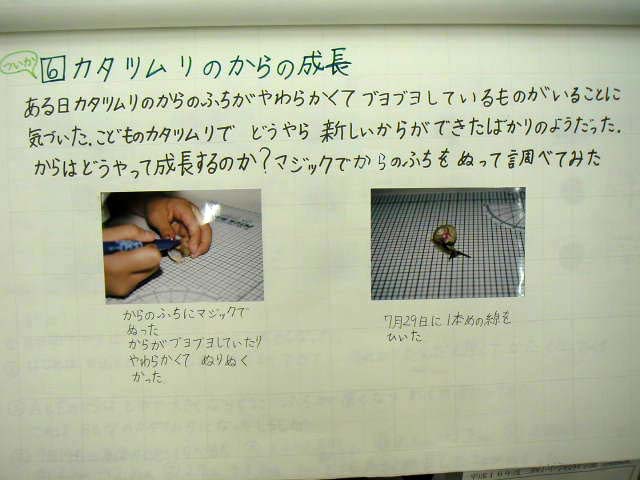 ついか
6 カタツムリのからの成長
ある日カタツムリのからのふちがやわらかくてブヨブヨしているものがいることに
気づいた.こどものカタツムリで どうやら 新しいからができたばかりのようだった.
からはどうやって成長するのか?マジックでからのふちをぬって調べてみた
からのふちにマジックで
ぬった
からがブヨブヨしていたり
やわらかくて ぬりぬく
かった
7月29日に1本めの線を
ひいた